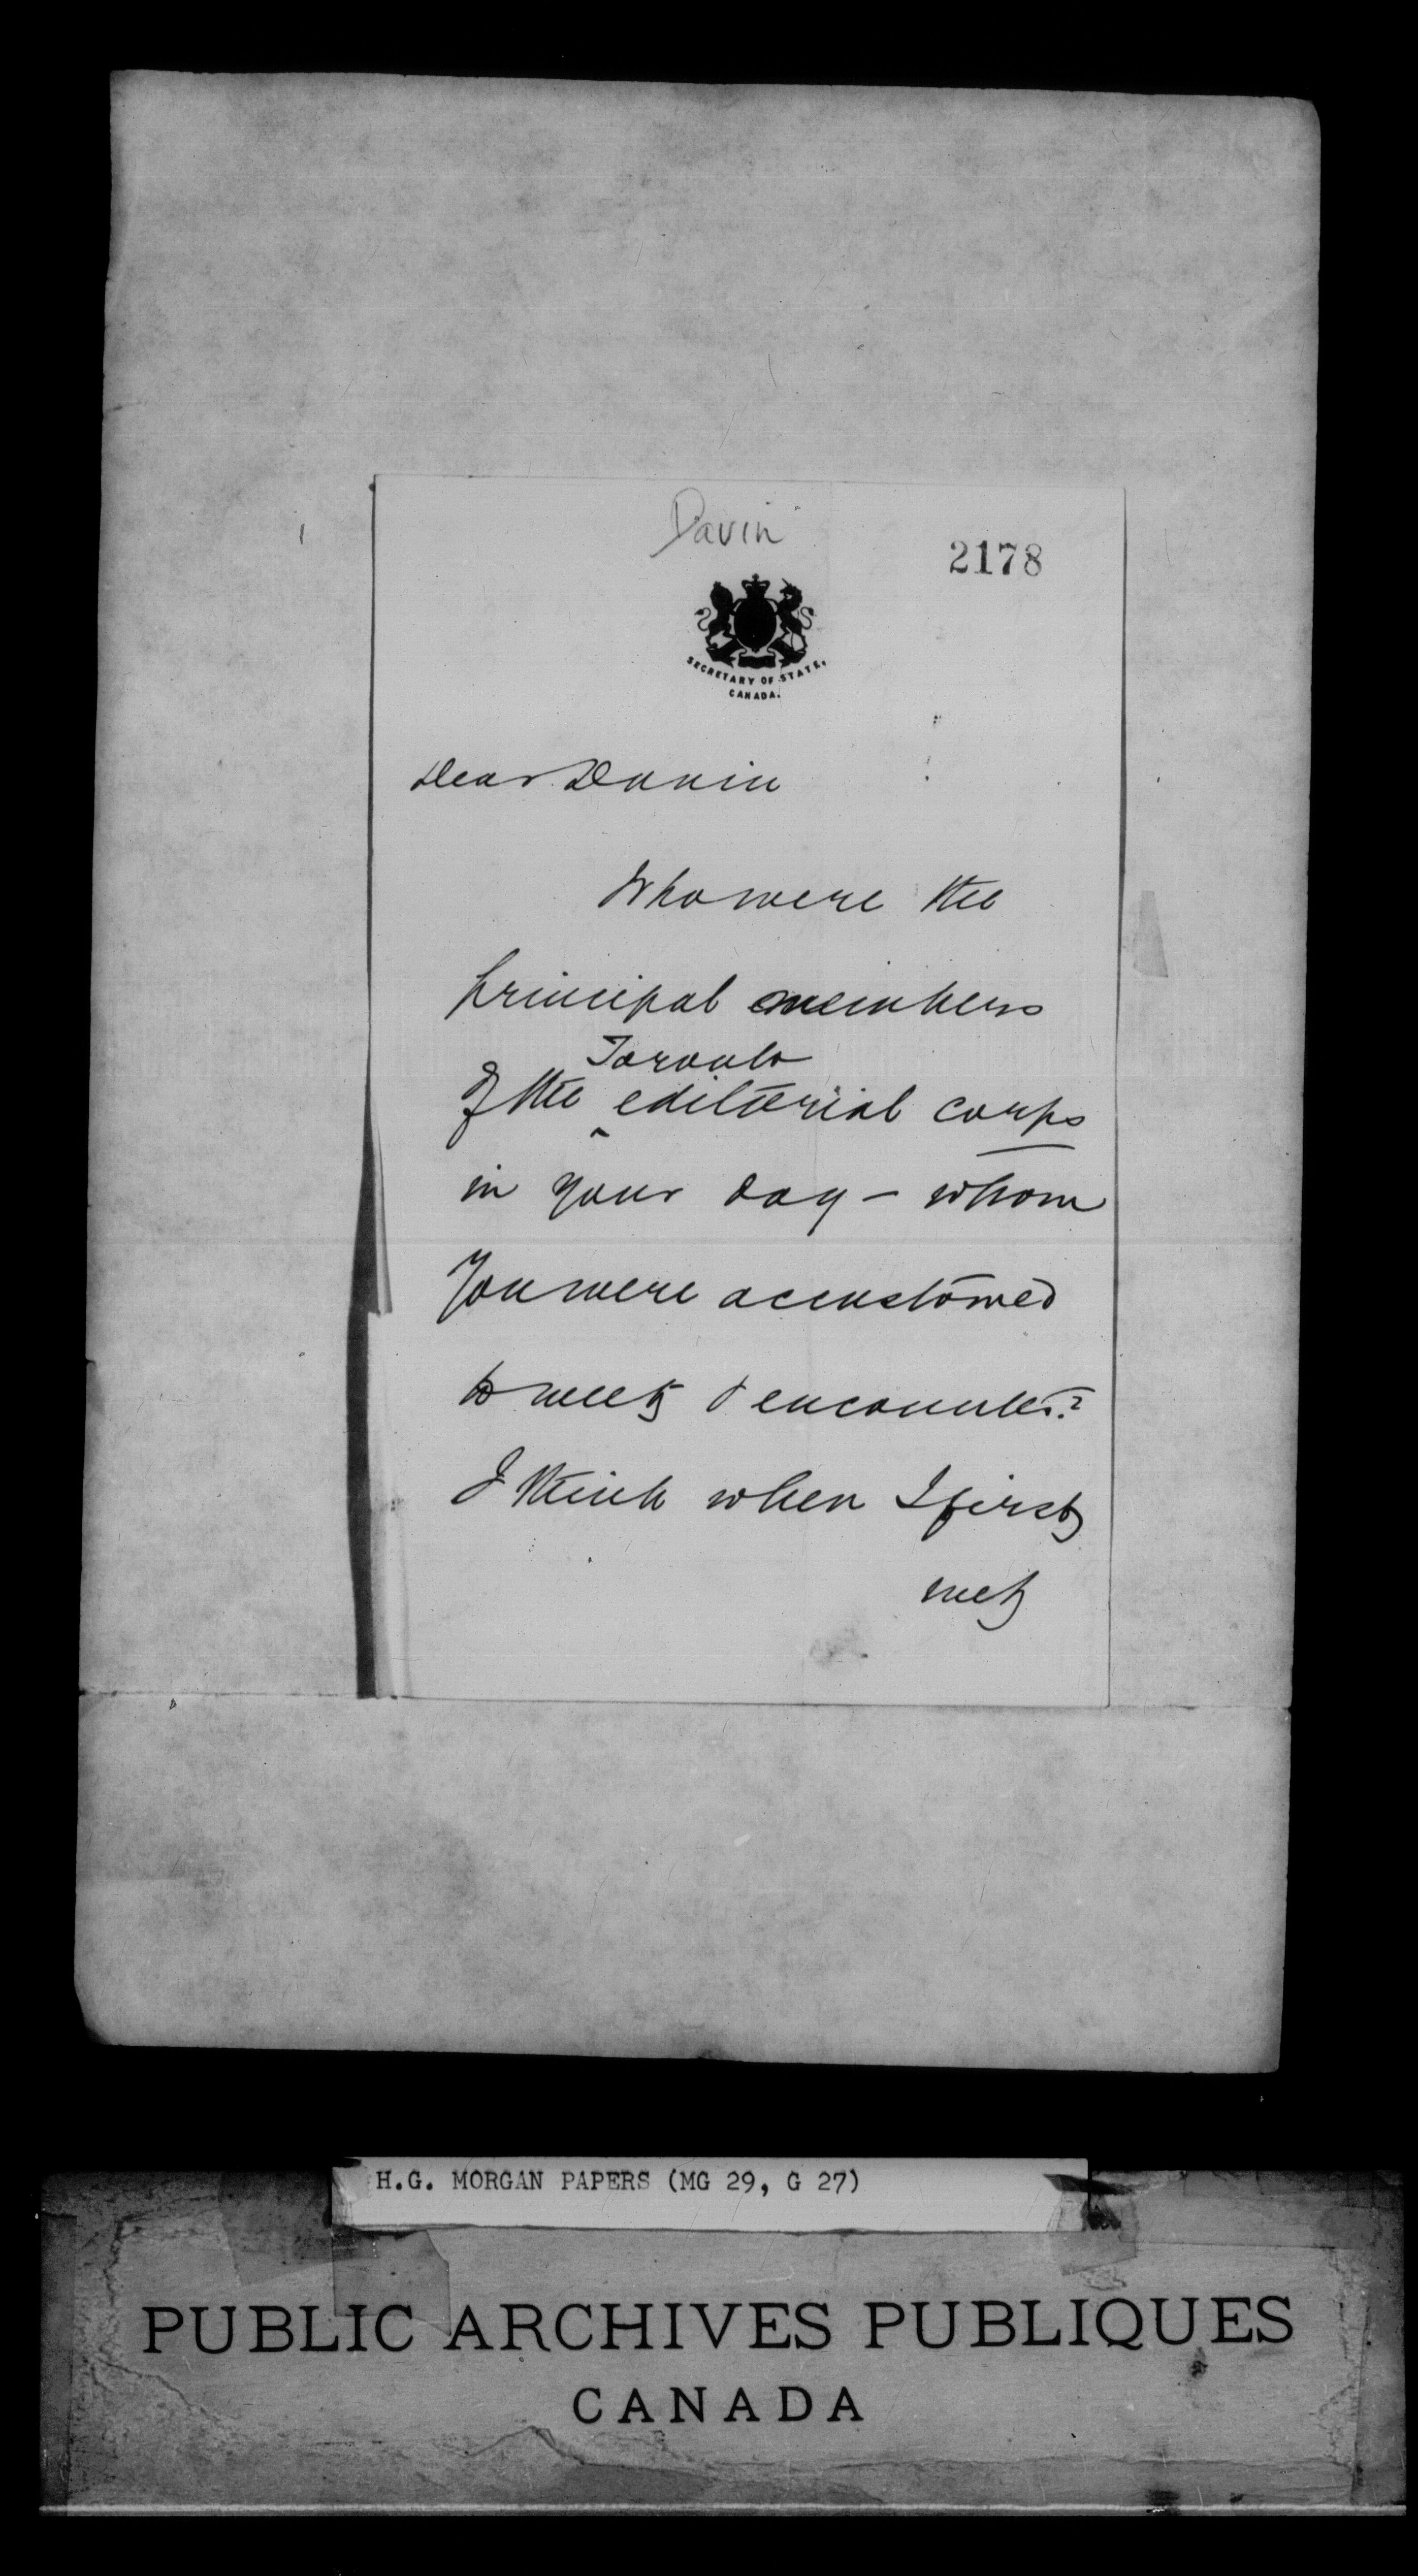 Davin
2178
SECRETARY OF STATE,
CANADA.
Dear Davin
Who were the
principal members
Toronto
of the ^ editorial corps
in your day - whom
you were accustomed
to meet & encounter?
I think when I first
met
H.G. MORGAN PAPERS (MG 29, G 27)
PUBLIC ARCHIVES PUBLIQUES
CANADA